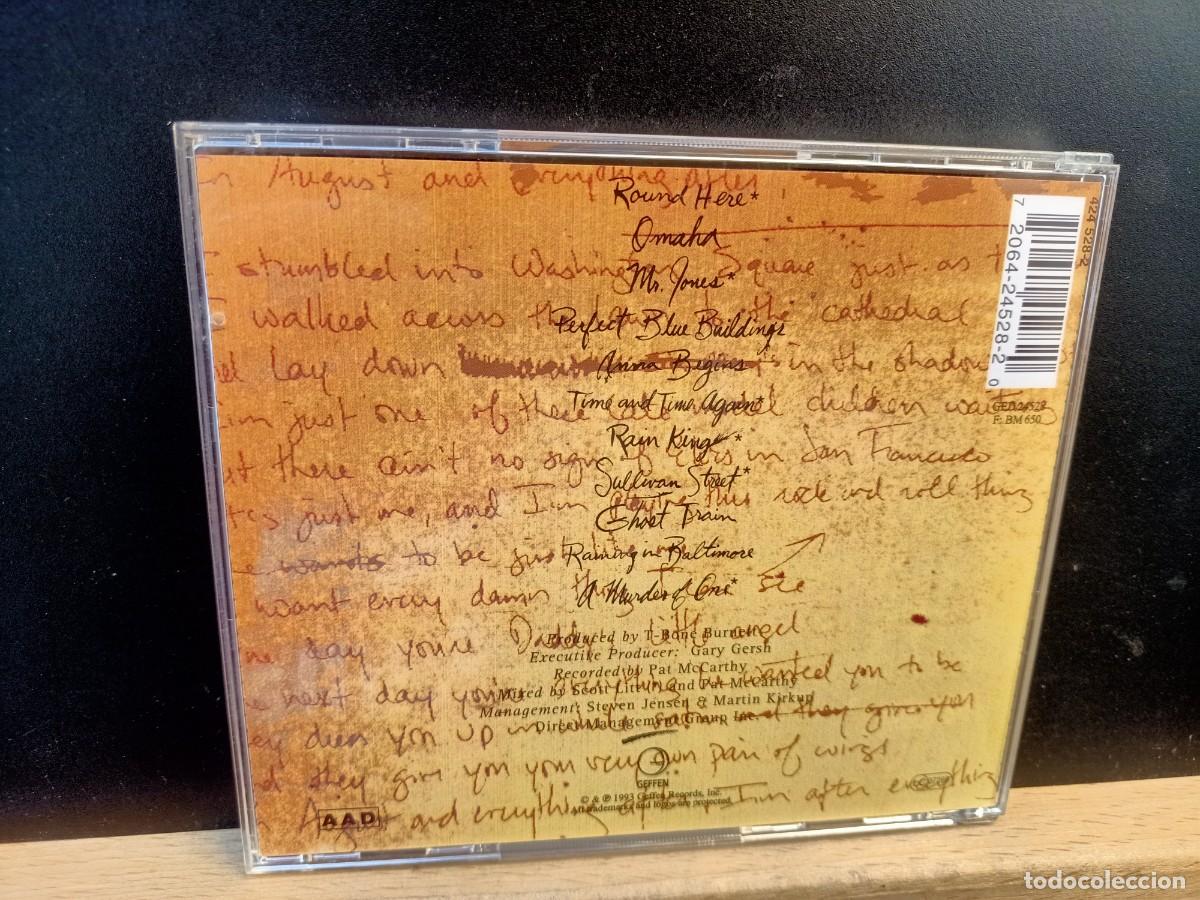 n August and everything after
Round Here*
Omaha
Mr. Jones*
Perfect Blue Buildings
Anna Begins
Time and Time Again*
Rain King*
Sullivan Street*
Ghost Train
Raining in Baltimore
A Murder of One*
stumbled into Washington Square just as t
I walked across the cathedral
lay down in the shadow
im just one of these children waiting
t there ain't no sign in San Francisco
just me, and I'm this rock and roll thing
wants to be just
want every damn thing I see
day you're Daddy's little angel
next day you're wanted you to be
dress you up in and they give you
d they give you your very own pair of wings
August and everything after I'm after everything
Produced by T-Bone Burnett
Executive Producer: Gary Gersh
Recorded by Pat McCarthy
Mixed by Scott Litt and Pat McCarthy
Management: Steven Jensen & Martin Kirkup
Direct Management Group Inc.
GEFFEN
© & ℗ 1993 Geffen Records, Inc.
All trademarks and logos are protected.
AAD
424 528-2
7 2064-24528-2 0
GED 24528
F: BM 650
todocoleccion